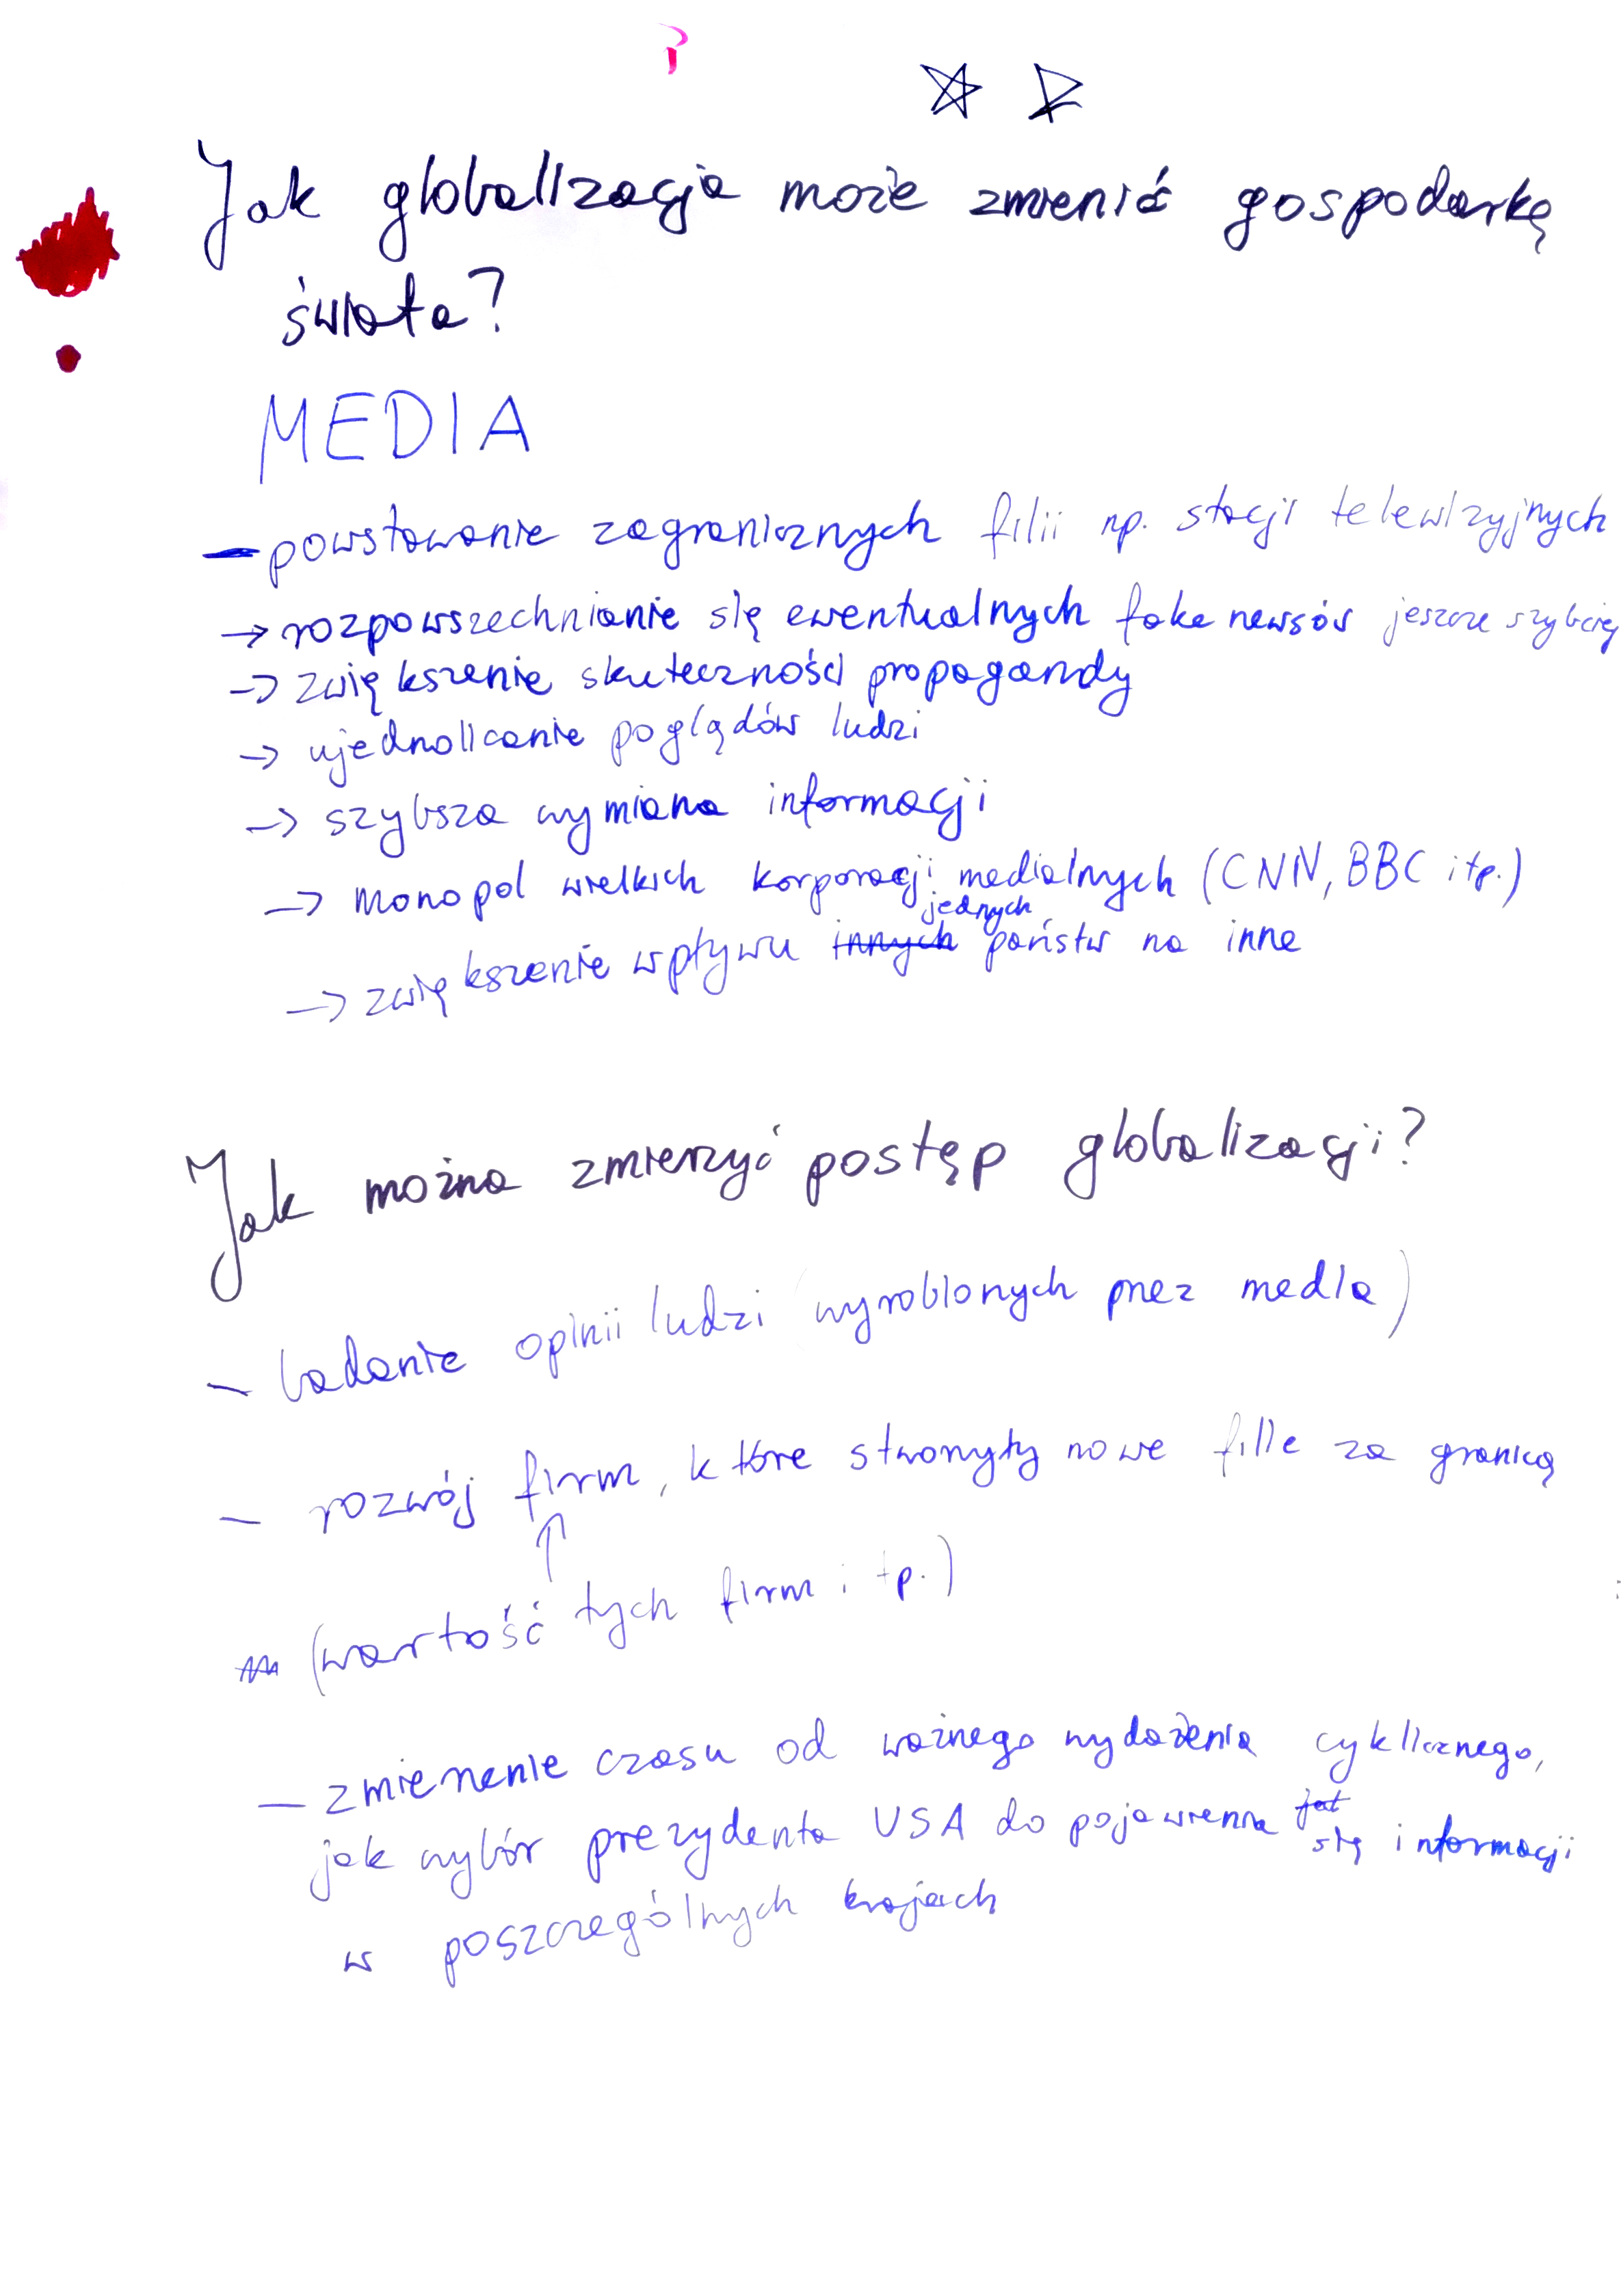 Jak globalizacja może zmienić gospodarkę
świata?
MEDIA
– powstawanie zagranicznych filii np. stacji telewizyjnych
→ rozpowszechnianie się ewentualnych fake newsów jeszcze szybciej
→ zwiększenie skuteczności propagandy
→ ujednolicanie poglądów ludzi
→ szybsza wymiana informacji
→ monopol wielkich korporacji medialnych (CNN, BBC itp.)
jednych
→ zwiększenie wpływu innych państw na inne
Jak można zmierzyć postęp globalizacji?
– badanie opinii ludzi (wyrobionych przez media)
– rozwój firm, które stworzyły nowe filie za granicą
↑
(wartość tych firm itp.)
– zmierzenie czasu od ważnego wydażenia cyklicznego,
jak wybór prezydenta USA do pojawienia się informacji
w poszczególnych krajach